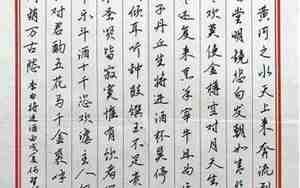 黄河之水天上来奔流
堂明镜悲白发朝如青丝
欢莫使金樽空对月天生
还复来烹羊宰牛且为
子丹丘生将进酒杯莫停
倾耳听钟鼓馔玉不足贵
贤皆寂寞惟有饮者
乐斗酒十千恣欢谑主人
对君酌五花马千金裘呼
销万古愁 李白将进酒